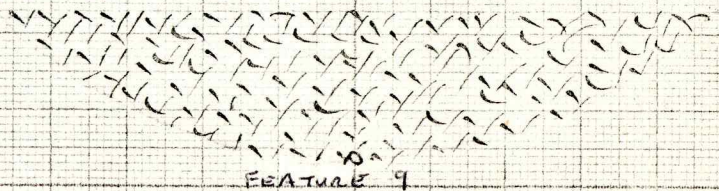 FEATURE 9